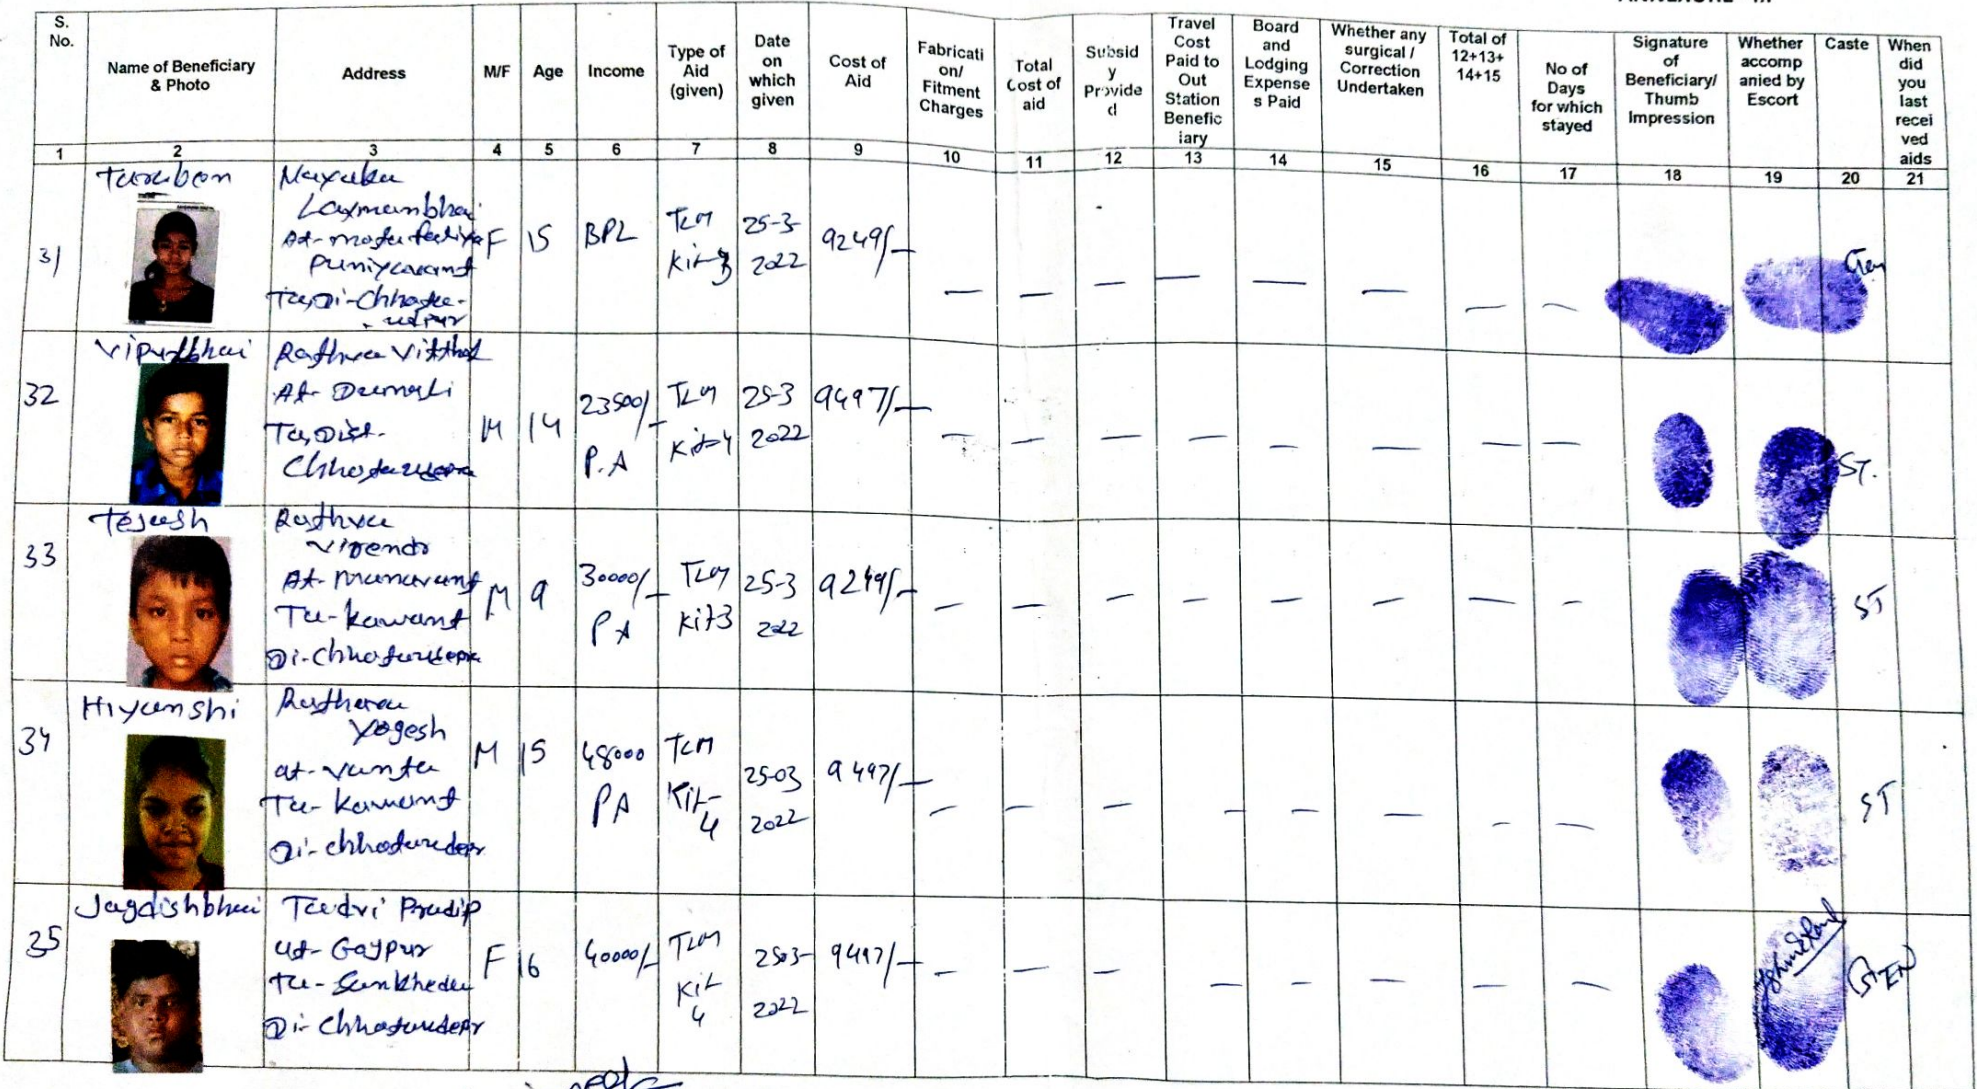 S. No.
Name of Beneficiary & Photo
Address
M/F
Age
Income
Type of Aid (given)
Date on which given
Cost of Aid
Fabricati on/ Fitment Charges
Total Cost of aid
Subsid y Provide d
Travel Cost Paid to Out Station Benefic iary
Board and Lodging Expense s Paid
Whether any surgical / Correction Undertaken
Total of 12+13+ 14+15
No of Days for which stayed
Signature of Beneficiary/ Thumb Impression
Whether accomp anied by Escort
Caste
When did you last recei ved aids
1 2 3 4 5 6 7 8 9 10 11 12 13 14 15 16 17 18 19 20 21
31
Laxmanbhai
F 15 BPL TLM Kit-3 25-3-2022 9249/-
— — — — — — — —
Gen
32 Vipulbhai
Rathva Vitthal
At-
Ta, Dist.
M 14 23500/- P.A TLM Kit-4 25-3 2022 9497/-
— — — — — — — —
ST.
33 Tejash
Rathva
Virendr
At-
Ta-Kawant
M 9 30000/- PA TLM Kit3 25-3 2022 9249/-
— — — — — — — —
ST
34 Hiyanshi
Yogesh
at-
Ta-Kawant
M 15 48000 PA TLM Kit-4 25-03 2022 9497/-
— — — — — — — —
ST
35 Jagdishbhai
Tadvi Pradip
at-Gajpur
Ta-Sankheda
F 16 40000/- TLM Kit 4 2503-2022 9497/-
— — — — — — — —
GEN